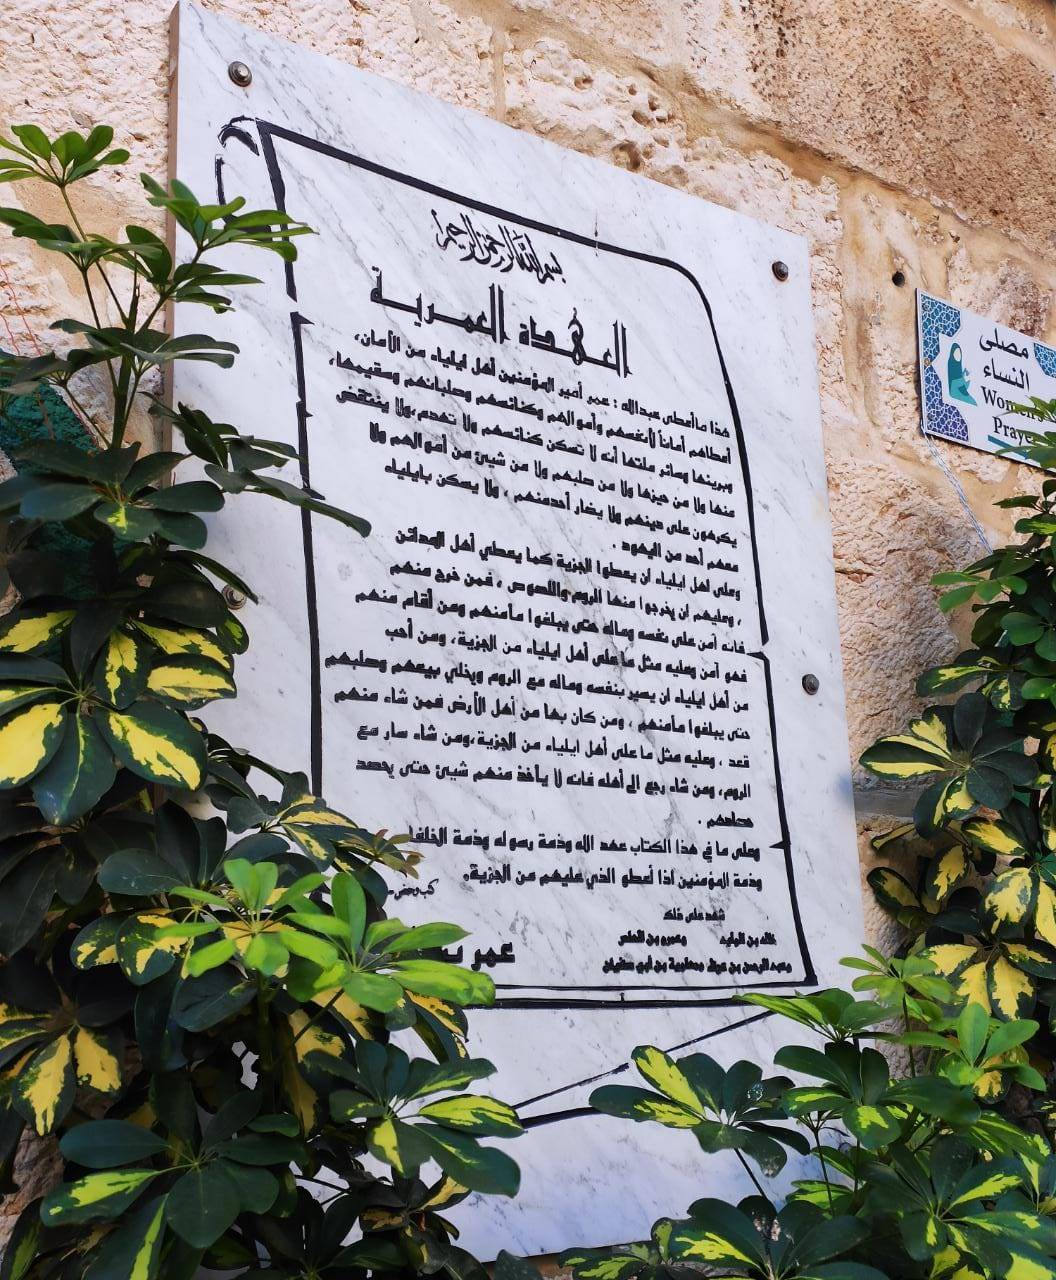 بسم الله الرحمن الرحيم
العهدة العمرية
هذا ما أعطى عبدالله : عمر أمير المؤمنين أهل ايلياء من الأمان،
أعطاهم أماناً لأنفسهم وأموالهم وكنائسهم وصلبانهم وسقيمها،
وبرينها وسائر ملتها أنه لا تسكن كنائسهم ولا تهدم،ولا ينتقض
منها ولا من حيزها ولا من صلبهم ولا من شيئ من أموالهم ولا
يكرهون على دينهم ولا يضار أحدمنهم ، ولا يسكن بايلياء
معهم أحد من اليهود .
وعلى أهل ايلياء أن يعطوا الجزية كما يعطي أهل المدائن
، وعليهم ان يخرجوا منها الروم واللصوص ، فمن خرج منهم
فانه آمن على نفسه وماله حتى يبلغوا مأمنهم ومن أقام منهم
فهو آمن وعليه مثل ما على أهل ايلياء من الجزية، ومن أحب
من أهل ايلياء ان يسير بنفسه وماله مع الروم ويخلي بيعهم وصلبهم
حتى يبلغوا مأمنهم ، ومن كان بها من أهل الأرض فمن شاء منهم
قعد ، وعليه مثل ما على أهل ايلياء من الجزية،ومن شاء سار مع
الروم، ومن شاء رجع الى أهله فانه لا يأخذ منهم شيئ حتى يحصد
حصادهم .
وعلى ما في هذا الكتاب عهد الله وذمة رسوله وذمة الخلفا
وذمة المؤمنين اذا أعطو الذي عليهم من الجزية.
كتب وحضر
شهد على ذلك
خالد بن الوليد وعمرو بن العاص
وعبد الرحمن بن عوف ومعاوية بن أبي سفيان
عمر
مصلى
النساء
Women's
Praye